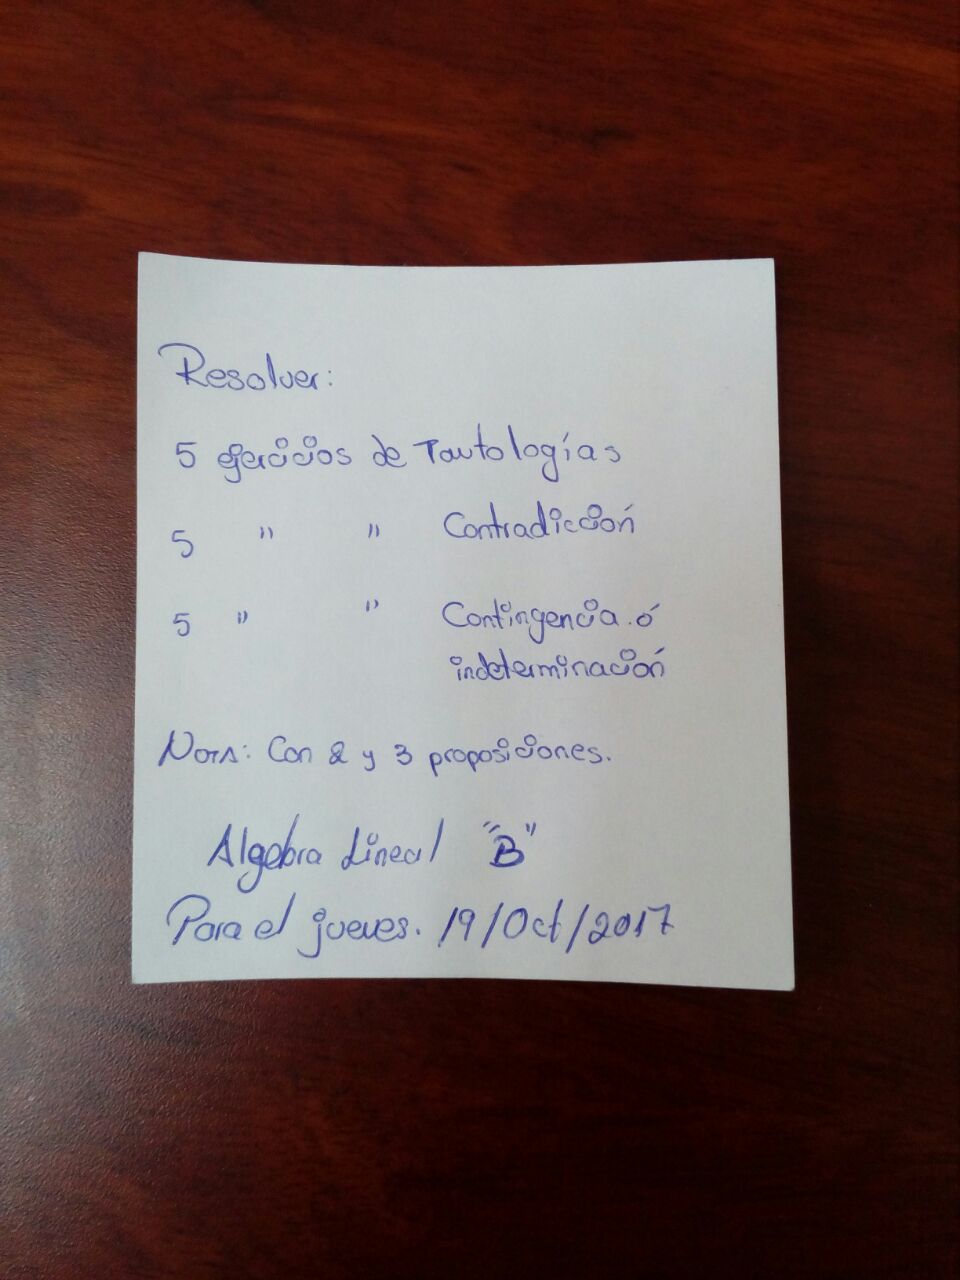 Resolver:
5 ejercicios de Tautologías
5 " " Contradicción
5 " " Contingencia ó
indeterminación
Nota: Con 2 y 3 proposiciones.
Algebra Lineal "B"
Para el jueves. 19/Oct/2017